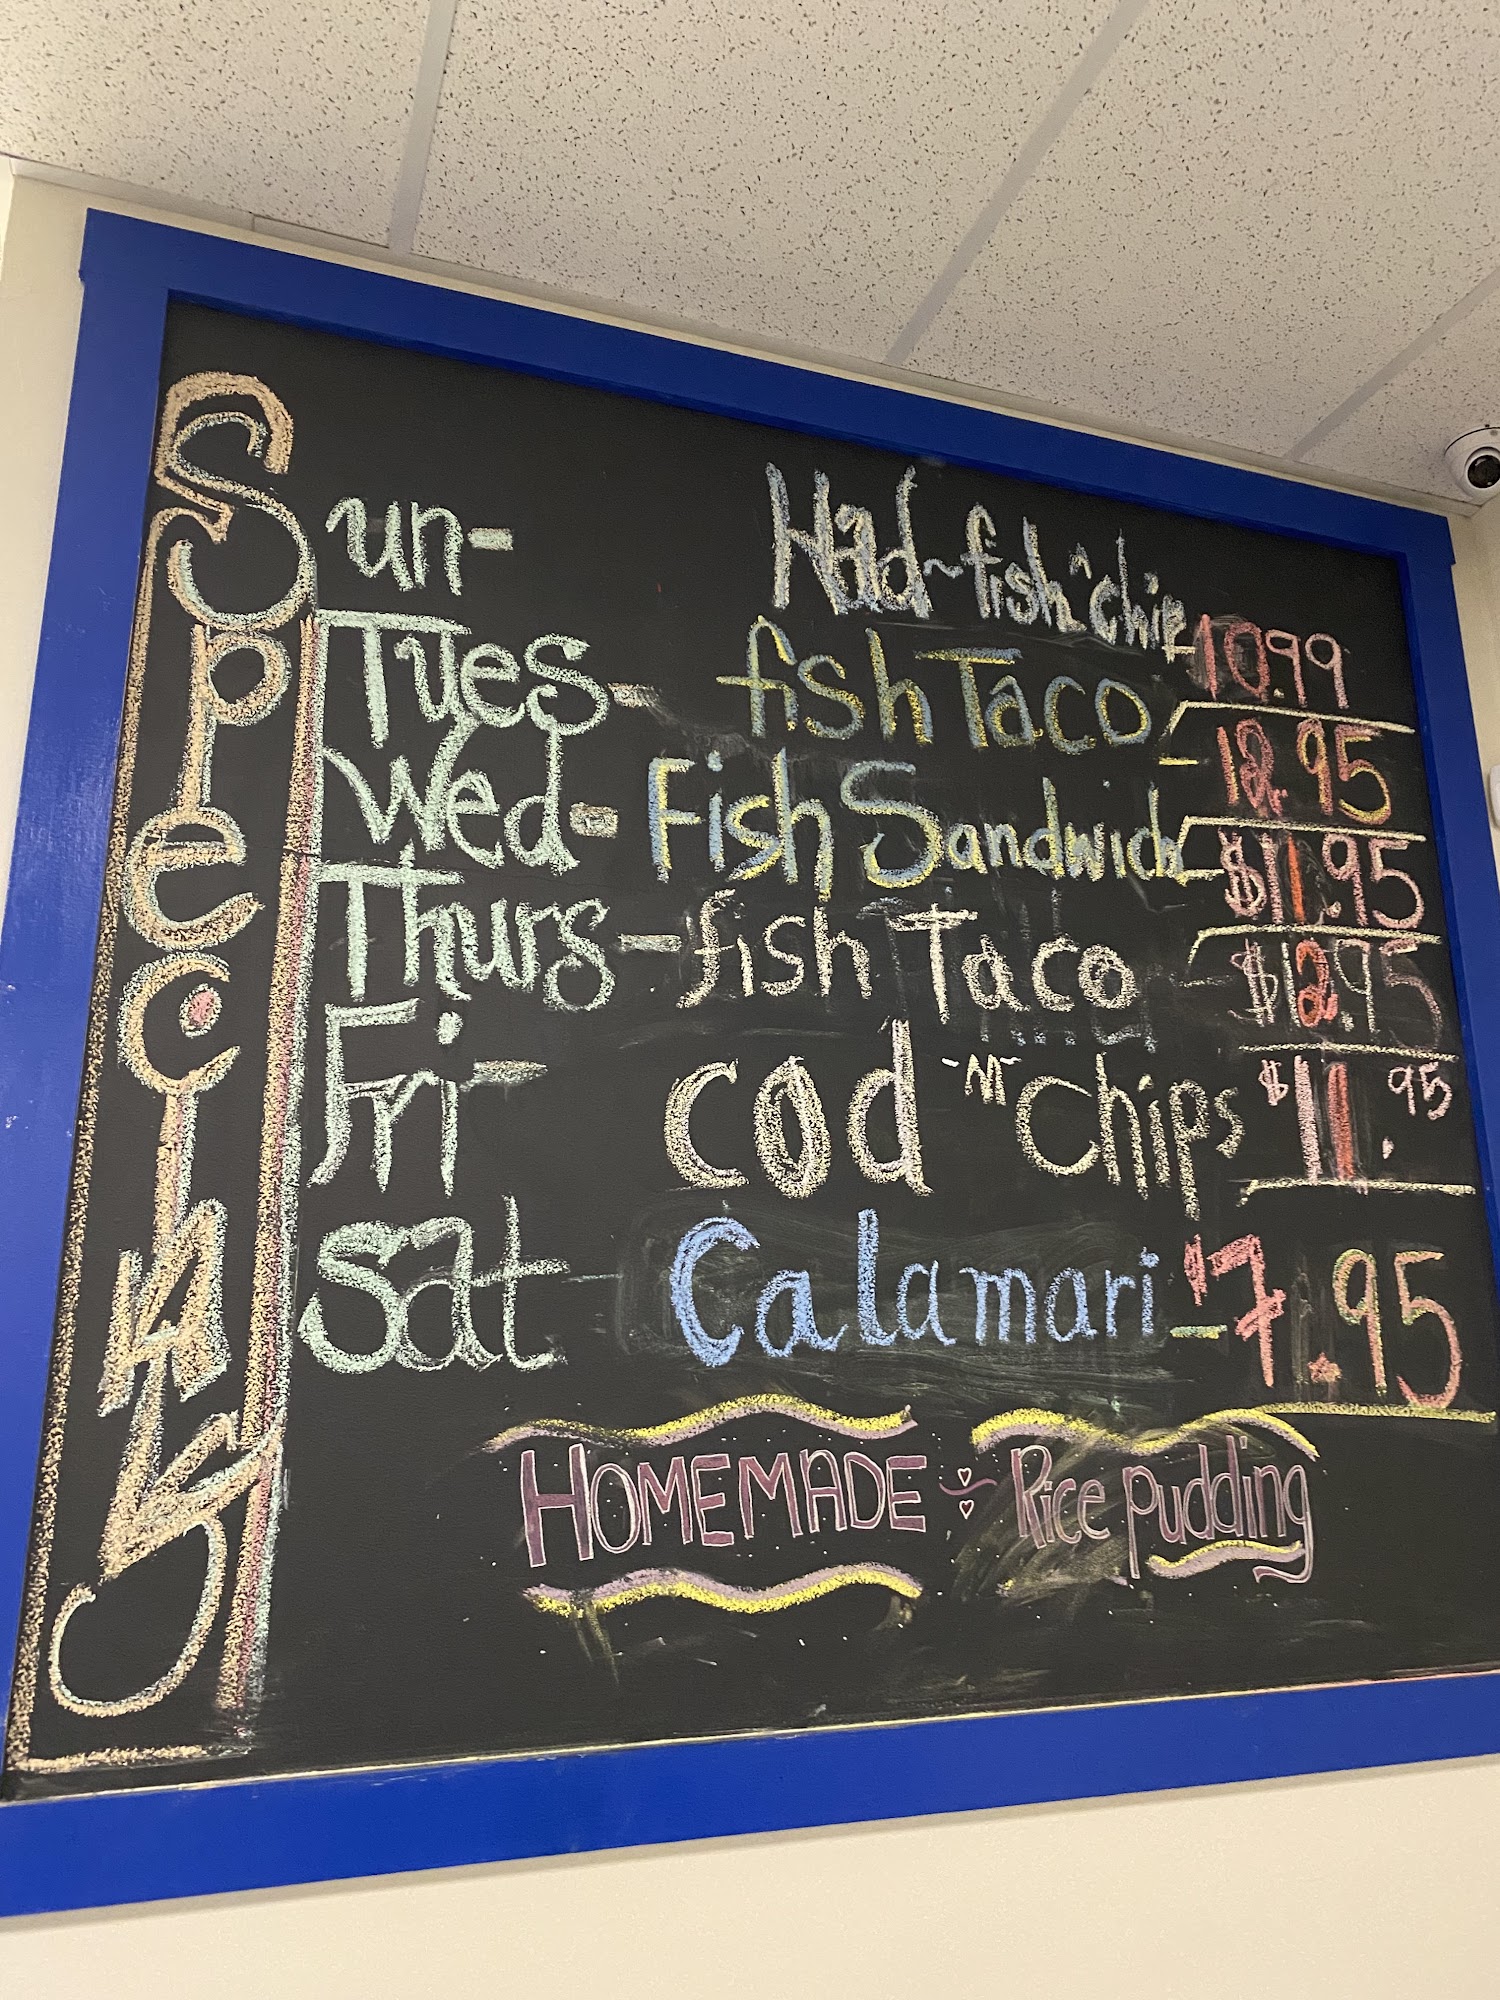 Specials
Sun- Had~fish^chip 10.99
Tues- fish Taco - 12.95
Wed- Fish Sandwich - $11.95
Thurs- fish Taco - $12.95
Fri- Cod "N" Chips $11.95
Sat- Calamari - $7.95
HOMEMADE ~ Rice Pudding